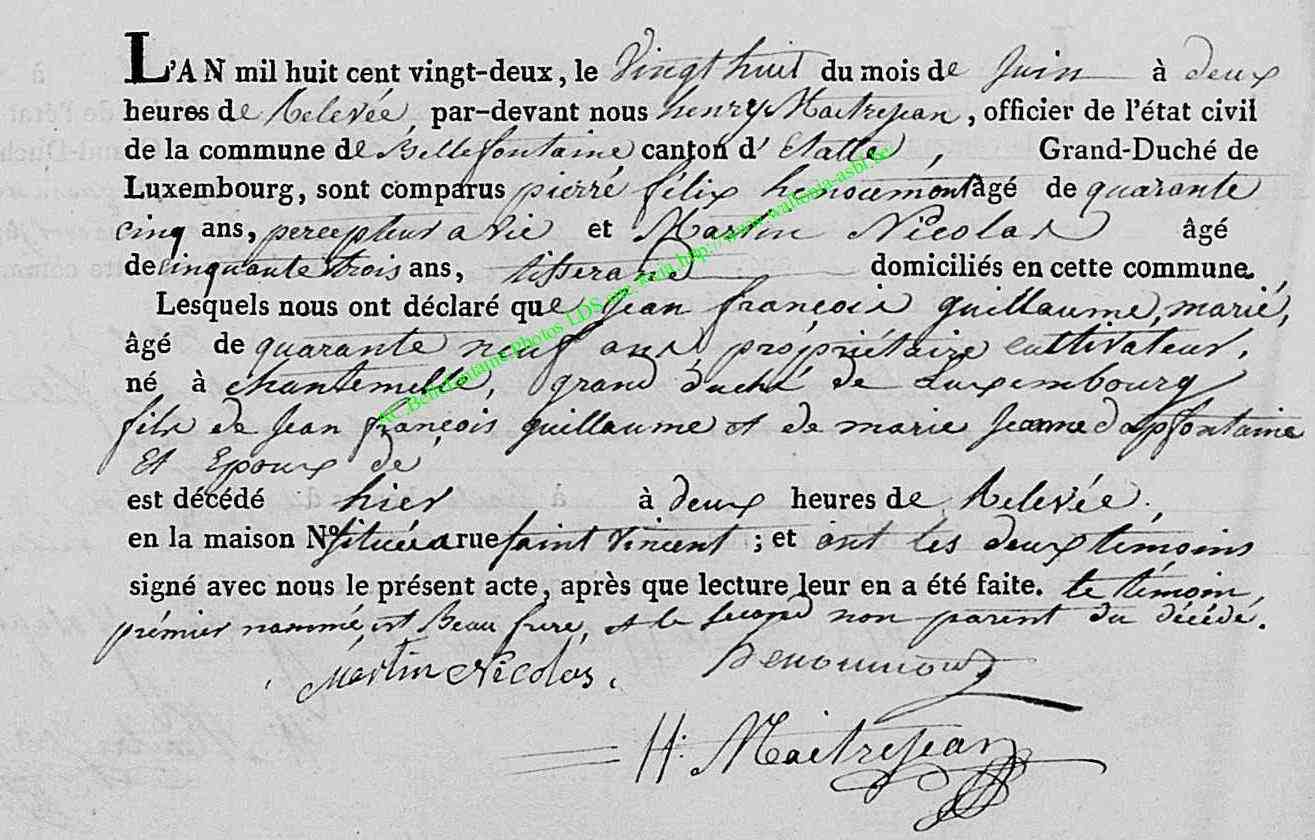 L'AN mil huit cent vingt-deux, le Vingt huit du mois de Juin à deux
heures de Relevée, par-devant nous henry Maitrejean, officier de l'état civil
de la commune de Bellefontaine canton d'Etalle, Grand-Duché de
Luxembourg, sont comparus pierre félix henoumont âgé de quarante
cinq ans, percepteur a vie et Martin Nicolas âgé
de cinquante trois ans, tisserand domiciliés en cette commune.
Lesquels nous ont déclaré que Jean françois guillaume, marié,
âgé de quarante neuf ans, propriétaire cultivateur,
né à chantemelle, grand duché de Luxembourg
fils de Jean françois guillaume et de marie Jeanne
Et Epoux de
est décédé hier à deux heures de Relevée,
en la maison No située a rue saint Vincent ; et ont les deux témoins
signé avec nous le présent acte, après que lecture leur en a été faite. le témoin,
prémier nommé, est Beau frere, et le second non parent du décédé.
Martin Nicolas. henoumont
H. Maitrejean
AC Bellefontaine Photos LDS http://www.wallonia-asbl.be